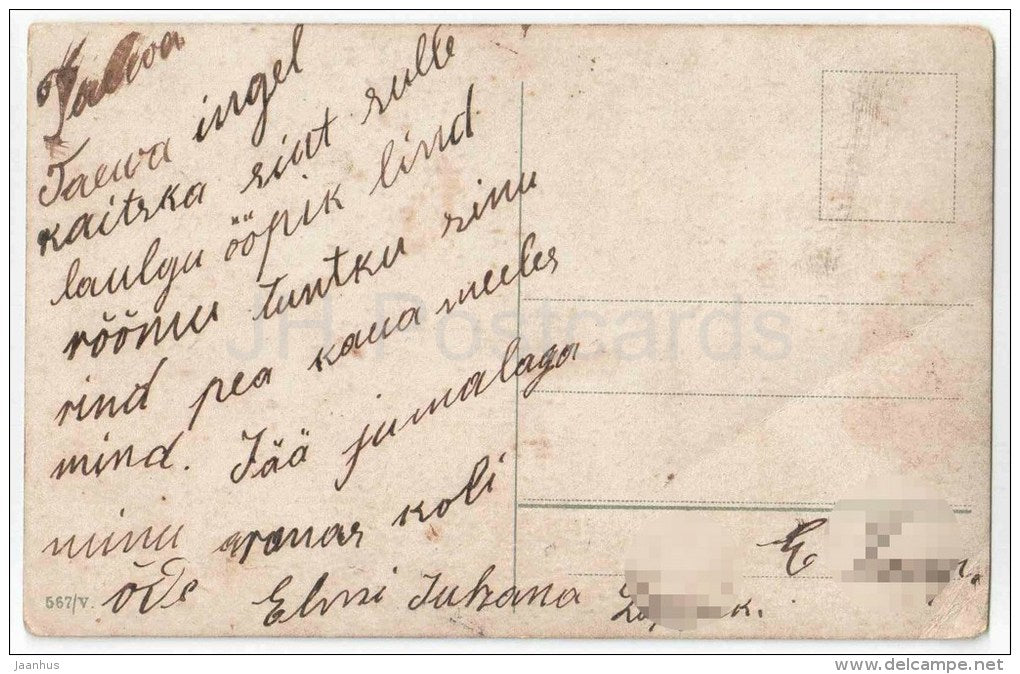 Taewa
Taewa ingel
kaitska sint sulle
laulgu ööpik lind
rõõmu tuntku sinu
rind pea kaua meeles
mind. Jää jumalaga
minu armas koli
õde Elmi Juhana
E
567/V.
JH Postcards
jaanhus
www.delcampe.net